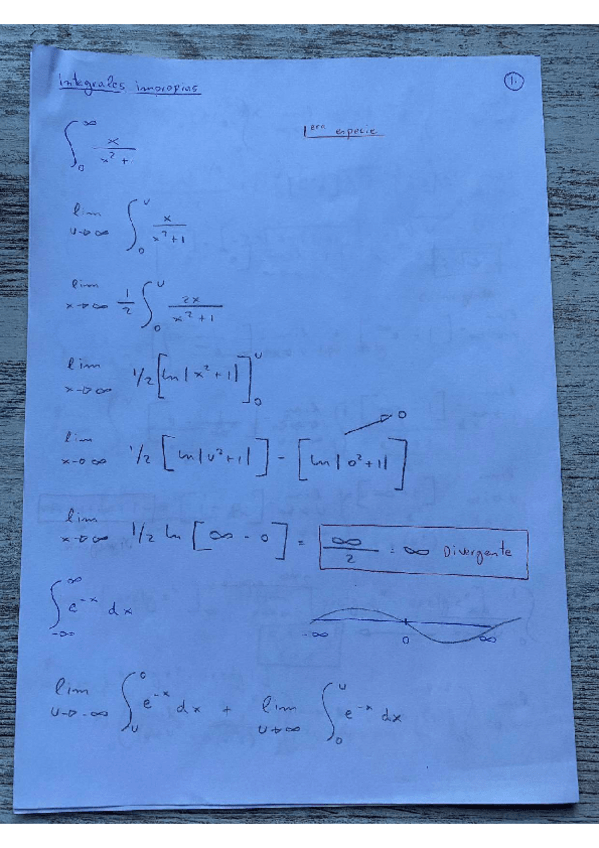 integrales impropias 1.
1era especie
∫₀^∞ x/(x²+
lim u→∞ ∫₀^u x/(x²+1)
lim x→∞ 1/2 ∫₀^u 2x/(x²+1)
lim x→∞ 1/2 [ln|x²+1|]₀^u
lim x→∞ 1/2 [ln|u²+1|] - [ln|0²+1|] → 0
lim x→∞ 1/2 ln [∞ - 0] = ∞/2 = ∞ Divergente
∫₋∞^∞ e^-x dx
-∞ 0 ∞
lim u→-∞ ∫ᵤ^0 e^-x dx + lim u→∞ ∫₀^u e^-x dx